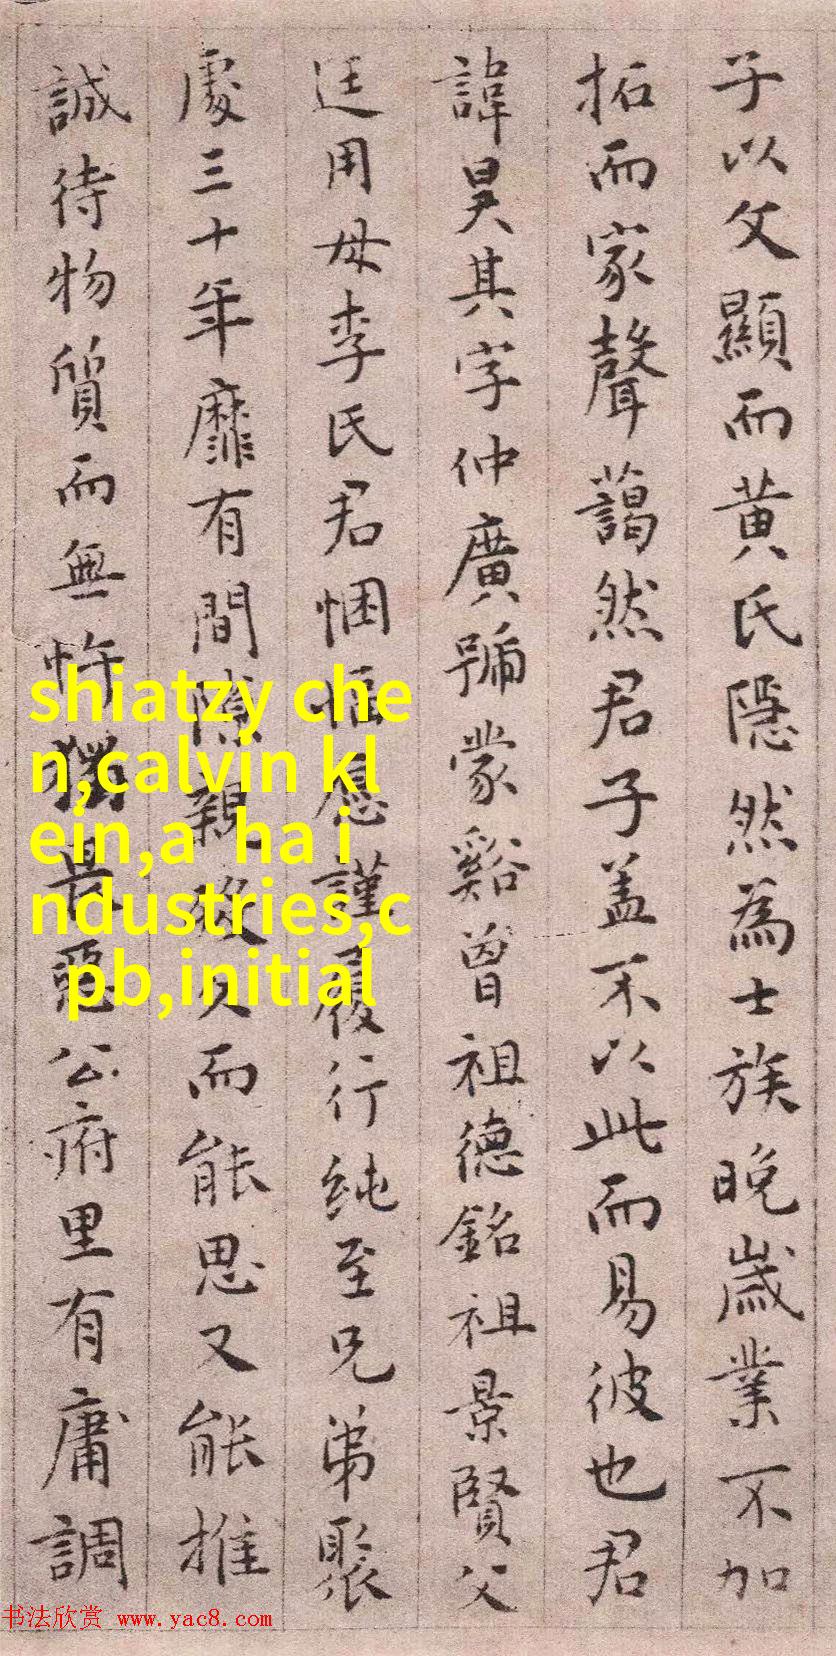 子以父顯而黃氏隱然為士族晚歲業不加
拓而家聲藹然君子蓋不以此而易彼也君
諱昊其字仲廣號蒙谿曾祖德銘祖景賢父
廷用母李氏君悃愊應謹履行純至兄弟聚
處三十年靡有間隙親歿久而能思又能推
誠待物質而無忤獨是惡公府里有庸調
shiatzy che
n,calvin kl
ein,a ha i
ndustries,c
pb,initial
书法欣赏 www.yac8.com